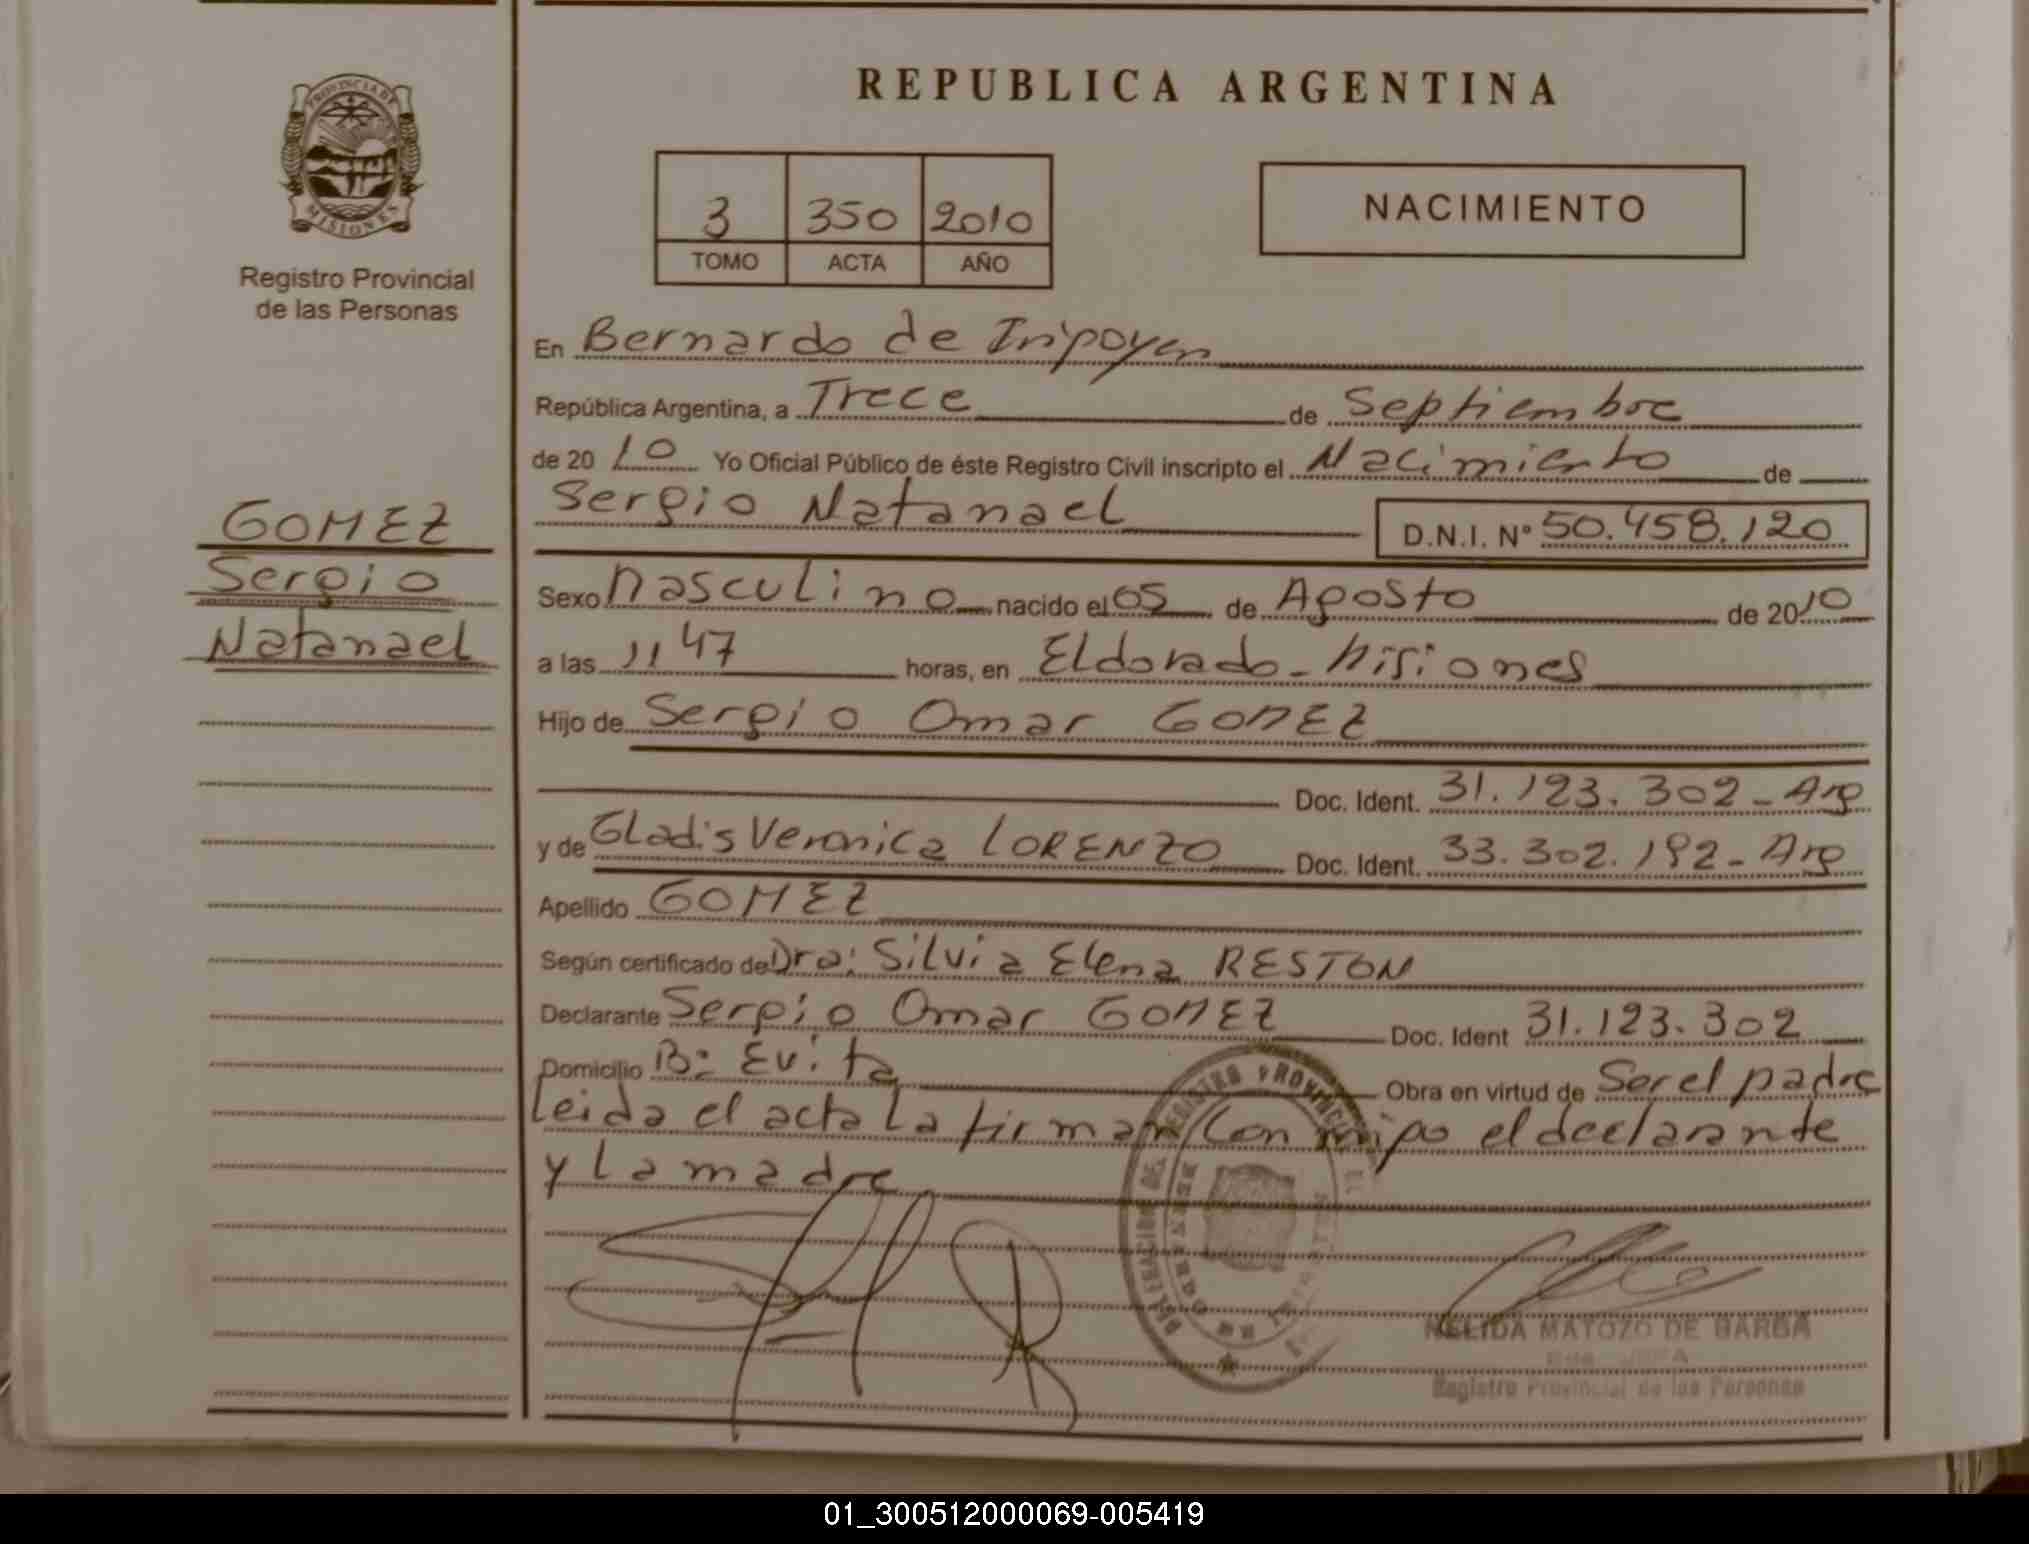 REPUBLICA ARGENTINA
PROVINCIA DE
MISIONES
Registro Provincial
de las Personas
3 350 2010
TOMO ACTA AÑO
NACIMIENTO
En Bernardo de Iripoyen
República Argentina, a Trece de Septiembre
de 2010 Yo Oficial Público de éste Registro Civil inscripto el Nacimiento de
Sergio Natanael D.N.I. Nº 50.458.120
GOMEZ
Sergio
Natanael
Sexo Masculino nacido el 05 de Agosto de 2010
a las 11 47 horas, en Eldorado - Misiones
Hijo de Sergio Omar GOMEZ
Doc. Ident. 31.123.302 - Arg
y de Gladis Veronica LORENZO Doc. Ident. 33.302.192 - Arg
Apellido GOMEZ
Según certificado de Dra: Silvia Elena RESTON
Declarante Sergio Omar GOMEZ Doc. Ident 31.123.302
Domicilio Bº Evita Obra en virtud de Ser el padre
leida el acta la firman con migo el declarante
y la madre
NELIDA MATOZO DE BARBA
Registro Provincial de las Personas
01_300512000069-005419